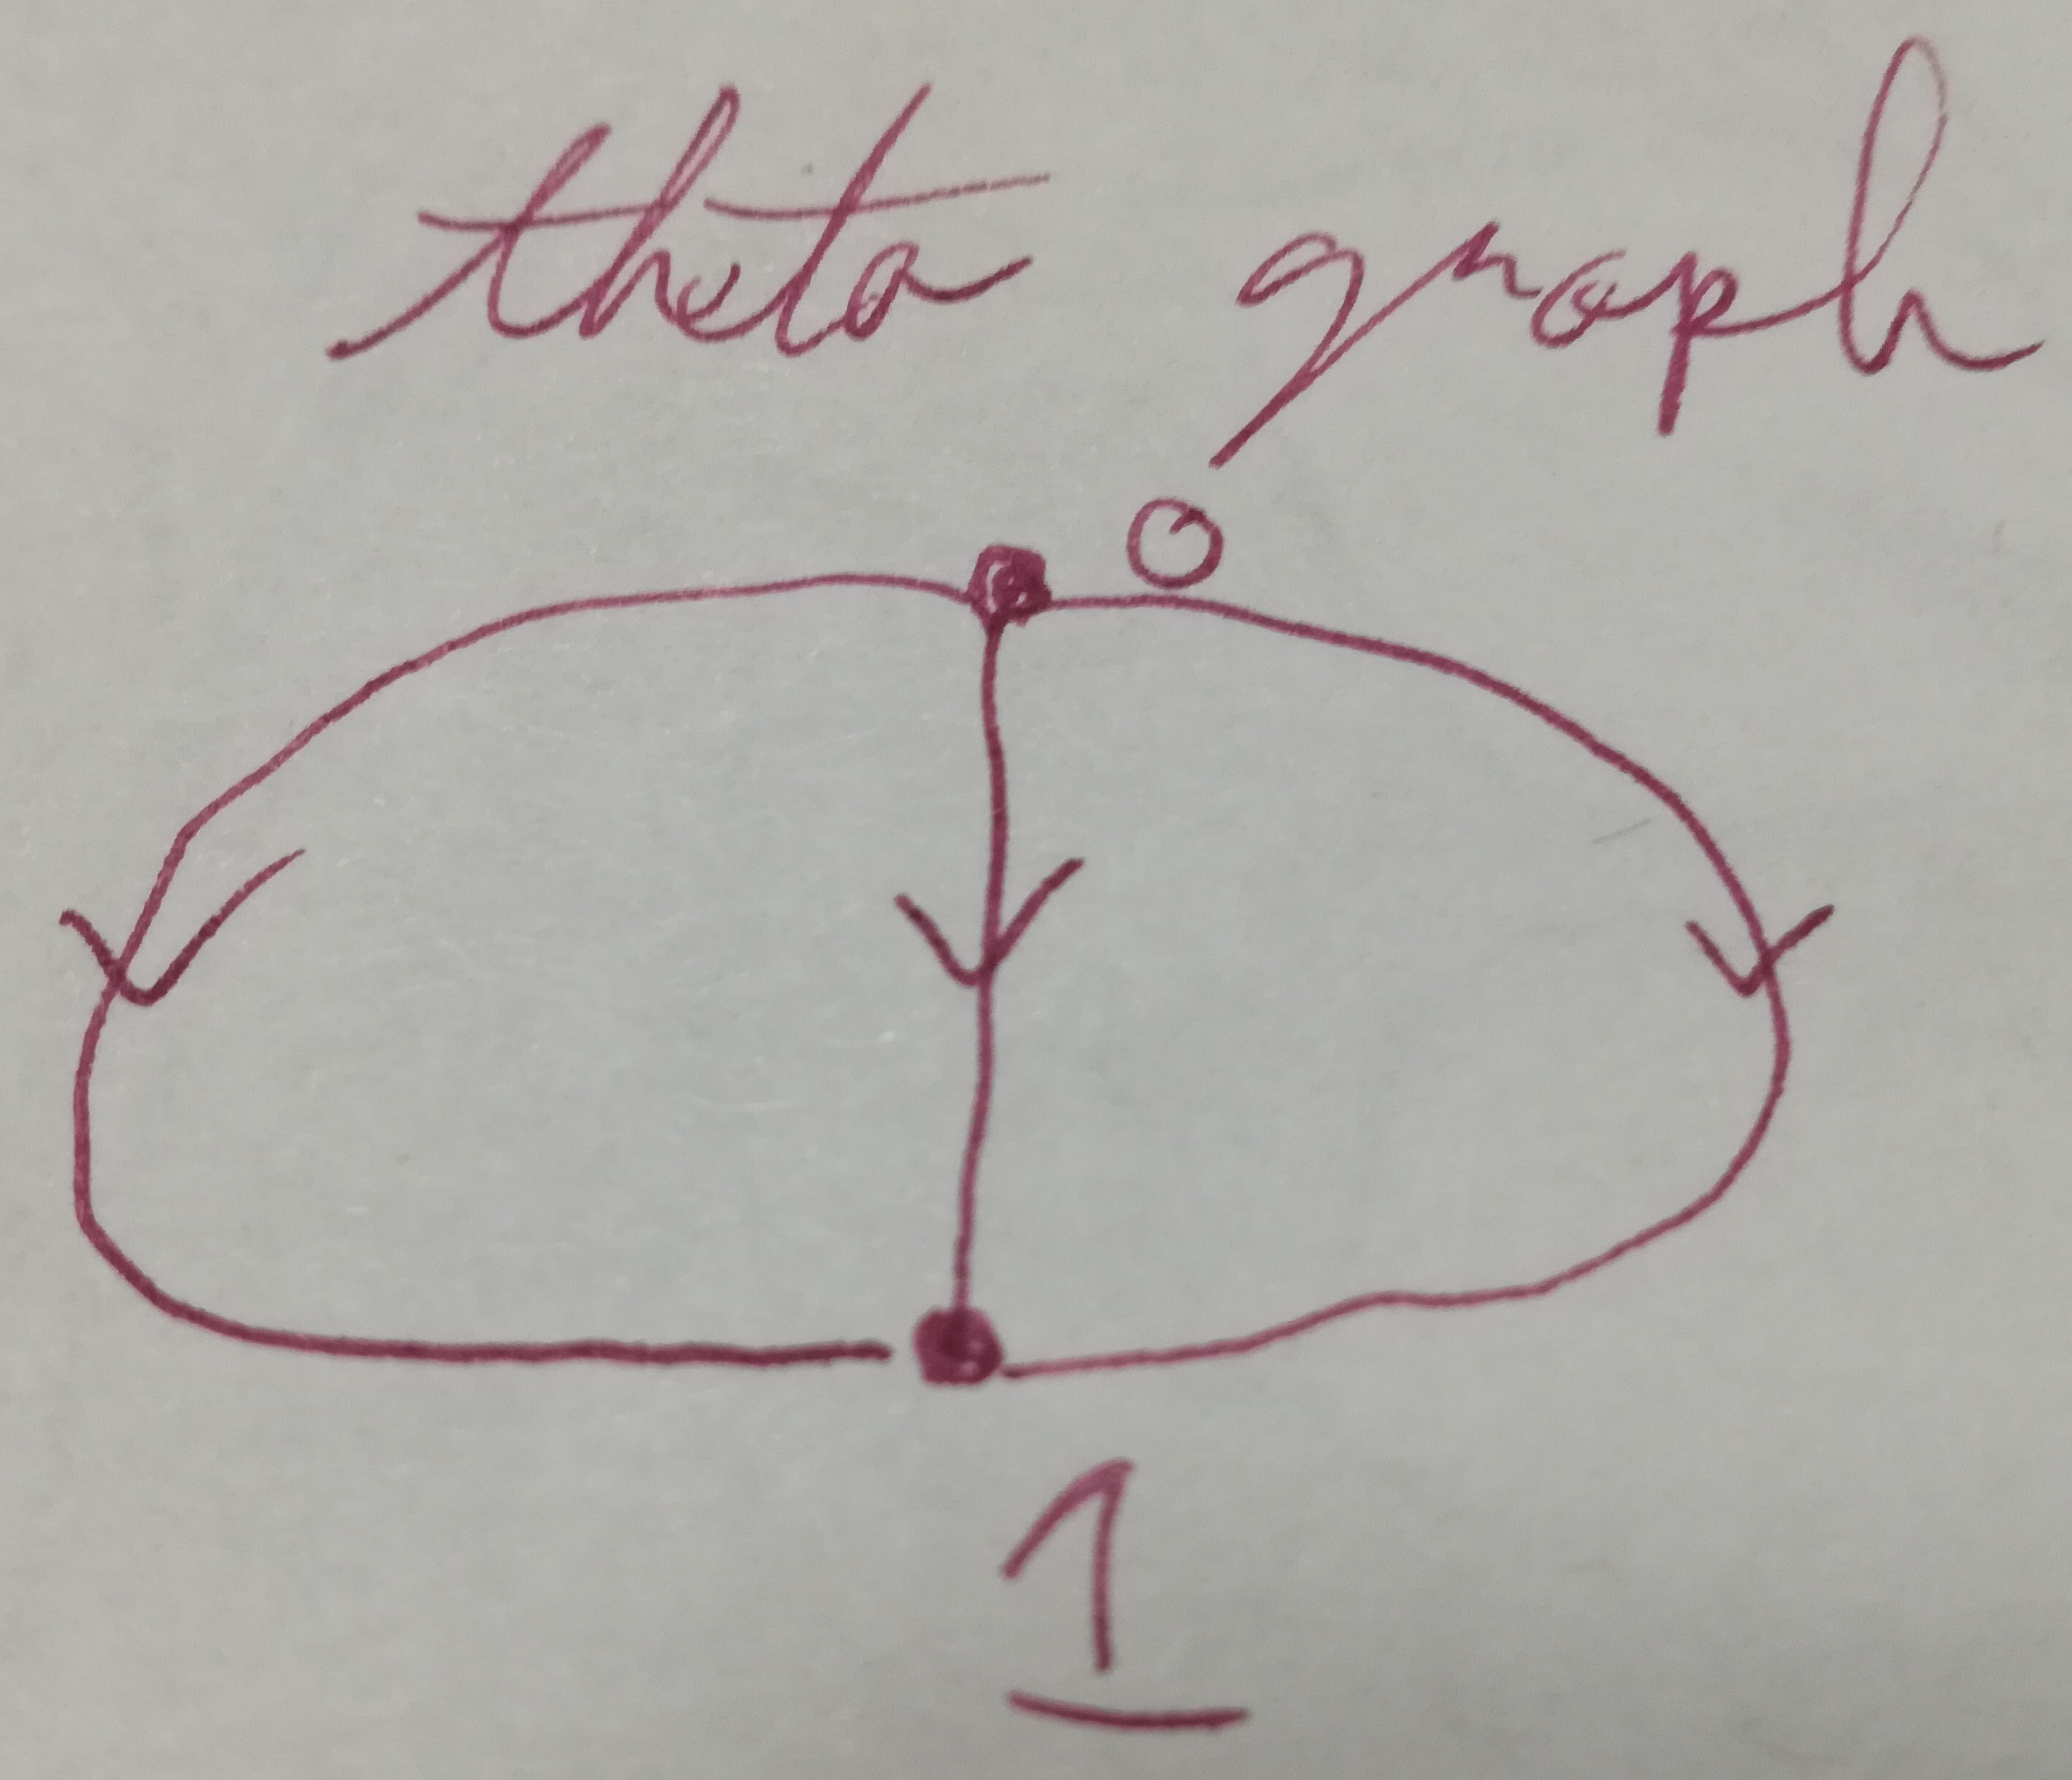 theta graph
0
1